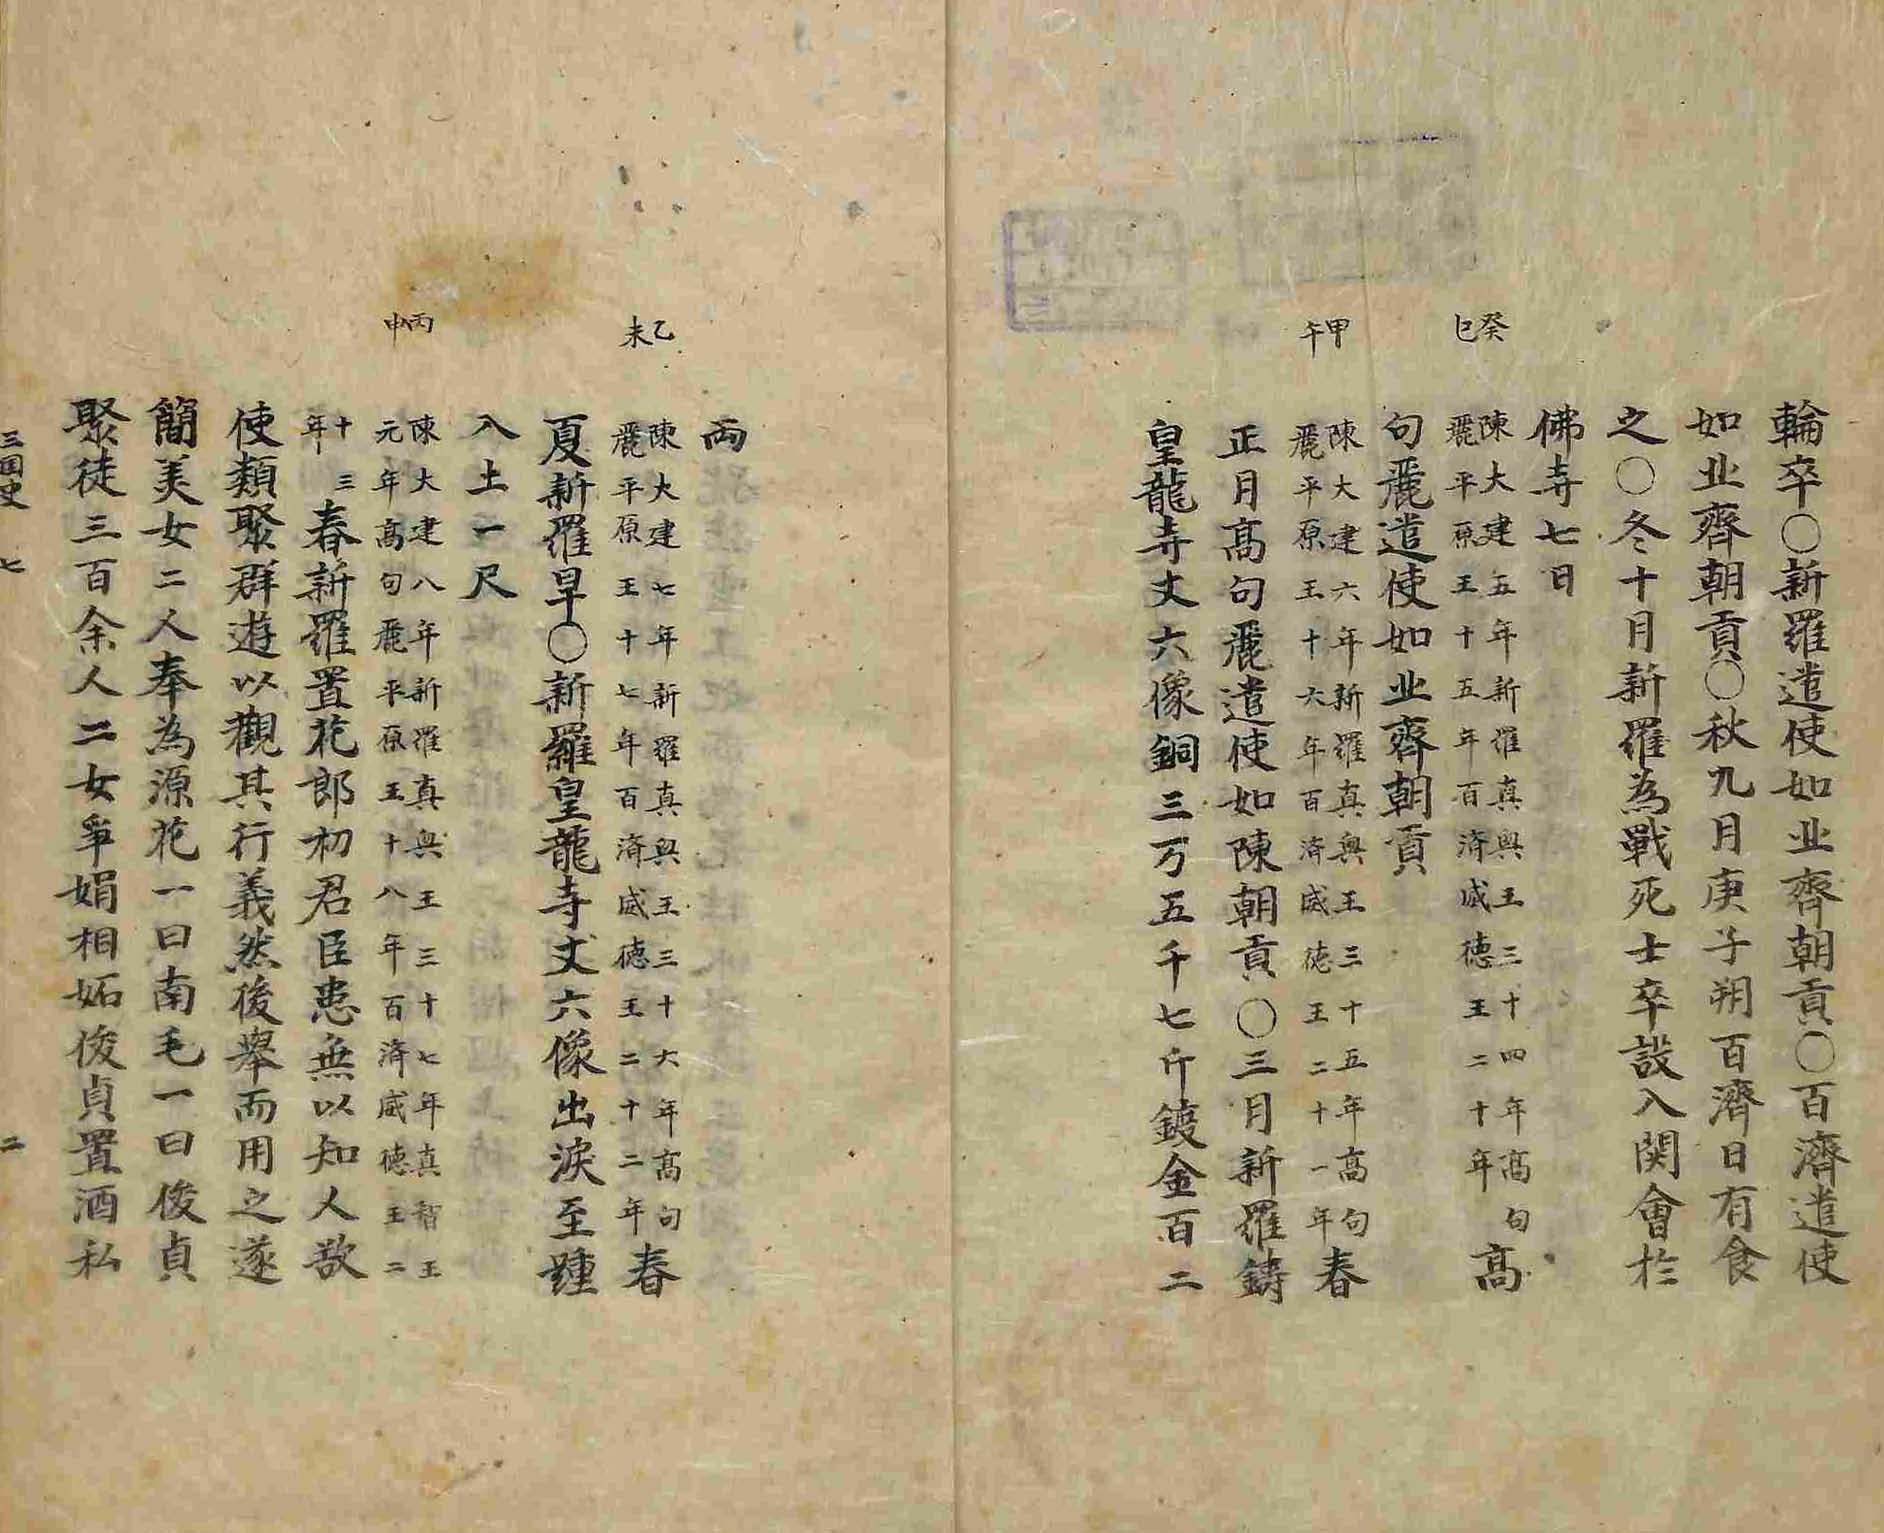 輪卒〇新羅遣使如业齊朝貢〇百濟遣使
如业齊朝貢〇秋九月庚子朔百濟日有食
之〇冬十月新羅為戰死士卒設八関會於
佛寺七日
癸巳
陳大建五年新羅真興王三十四年髙句
麗平原王十五年百済威德王二十年
髙
句麗遣使如业齊朝貢
甲午
陳大建六年新羅真興王三十五年髙句
麗平原王十六年百済威徳王二十一年
春
正月髙句麗遣使如陳朝貢〇三月新羅鑄
皇龍寺丈六像銅三万五千七斤鍍金百二
両
乙未
陳大建七年新羅真興王三十六年髙句
麗平原王十七年百済威徳王二十二年
春
夏新羅旱〇新羅皇龍寺丈六像出淚至踵
八土一尺
丙申
陳大建八年新羅真興王三十七年真智王
元年髙句麗平原王十八年百済威徳王二
十三
年
春新羅置花郎初君臣患無以知人欲
使類聚群遊以觀其行義然後舉而用之遂
簡美女二人奉為源花一曰南毛一曰俊貞
聚徒三百余人二女爭娟相妬俊貞置酒私
三国史 七 二